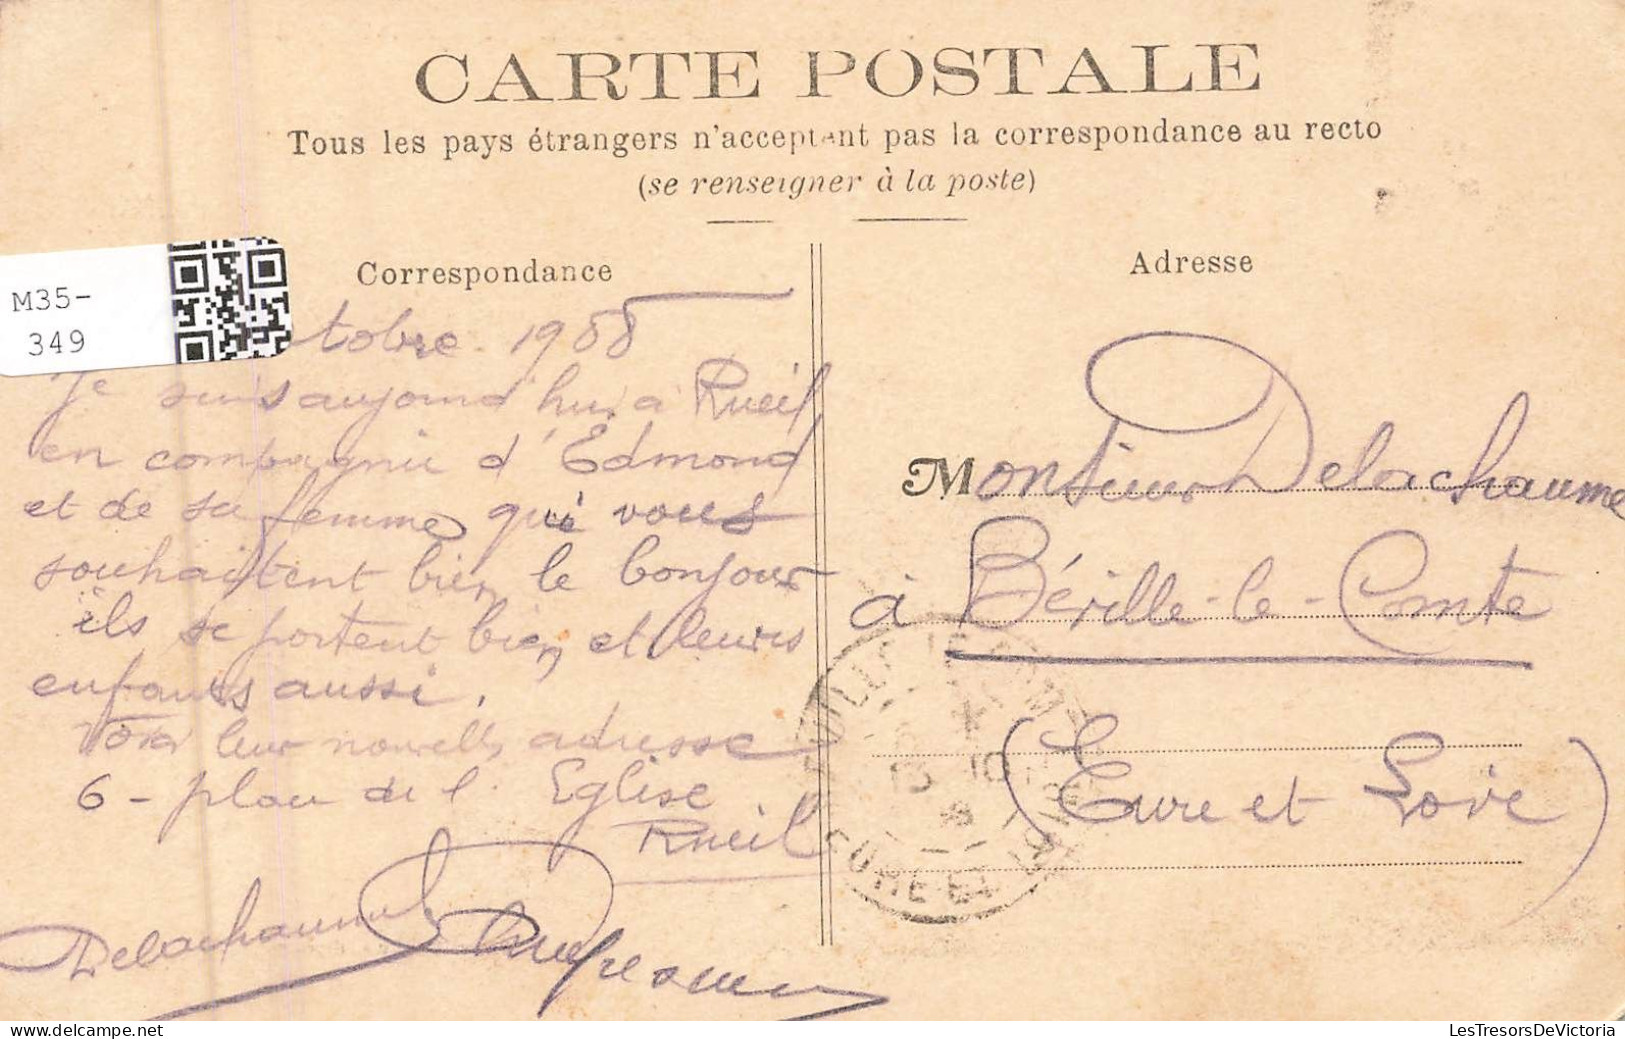 CARTE POSTALE
Tous les pays étrangers n'acceptent pas la correspondance au recto
(se renseigner à la poste)
M35-
349
Correspondance
tobre 1908
Je suis aujourd'hui a Rueil
en compagnie d'Edmond
et de sa femme qui vous
souhaitent bien le bonjour
ils se portent bien et leurs
enfants aussi.
Voici leur nouvelle adresse
6 - place de l'Eglise
Rueil
Delachaume
Adresse
Monsieur Delachaume
à Béville-le-Comte
(Eure et Loir)
EURE ET LOIR
LesTresorsDeVictoria